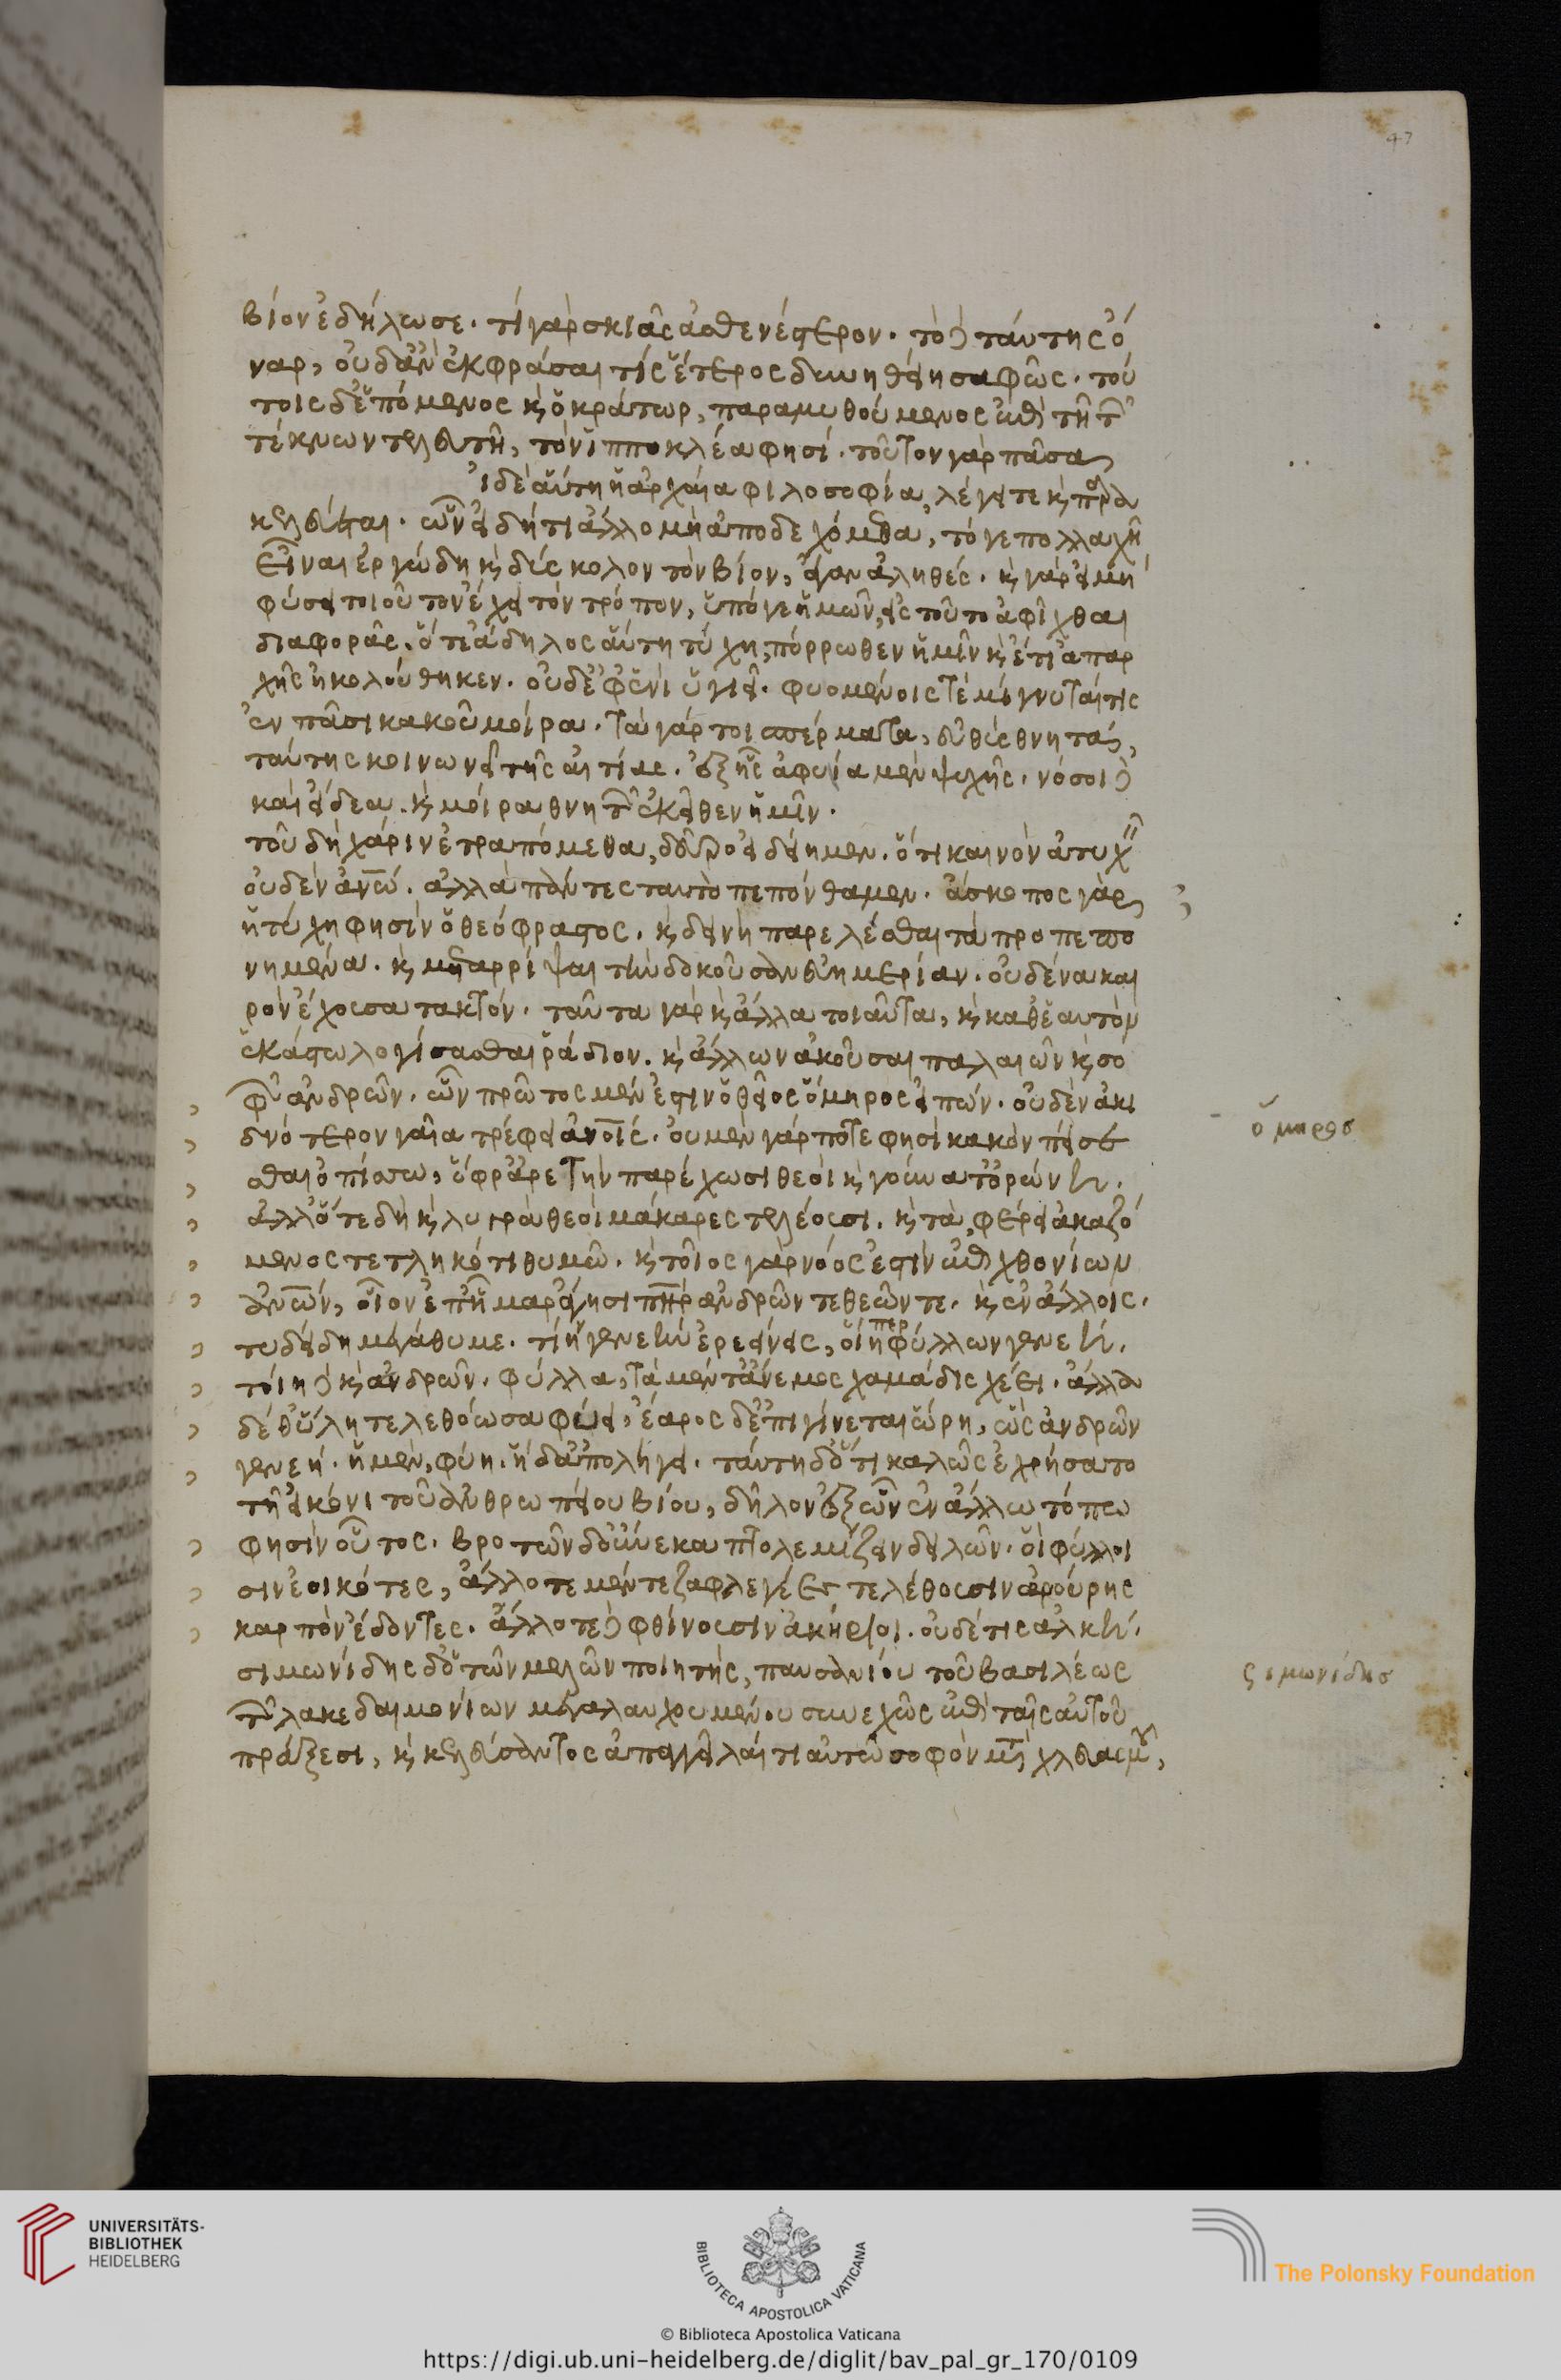 βίον ἐδήλωσε. τί γὰρ σκιᾶς ἀσθενέστερον. τὸ δὲ ταύτης ὄ
ναρ, οὐδ' ἂν ἐκφράσαι τίς ἕτερος δυνηθείη σαφῶς. τού
τοις δ' ἑπόμενος κ ὁ κράτωρ, παραμυθούμενος ἐπὶ τῆ τῶν
τέκνων τελευτῆ, τὸν ἱπποκλέα φησί. τοῦτον γὰρ πᾶσα
ἰδὲ αὕτη ἡ ἀρχαία φιλοσοφία, λέγει τε κ παρα
κελεύεται. ὧν εἰ δή τι ἄλλο μὴ ἀποδεχόμεθα, τό γε πολλαχῆ
εἶναι ἐργώδη κ δύσκολον τὸν βίον, ἄγαν ἀληθές. κ γὰρ εἰ μὴ
φύσει τοιοῦτον ἔχει τὸν τρόπον, ὑπό γε ἡμῶν, εἰς τοῦτο ἀφῖχθαι
διαφορᾶς. ὅ τε ἄδηλος αὕτη τύχη, πόρρωθεν ἡμῖν κ ἔτι ἀπ' αρ
χῆς ἠκολούθηκεν. οὐδ' ἐφ' ἑνὶ ὑγιεῖ. φυομένοις τὲ μίγνυταί τις
ἐν πᾶσι κακοῦ μοίρα. τὰ γάρ τοι σπέρματα, εὐθὺς θνητὰ,
ταύτης κοινωνεῖ τῆς αἰτίας. ἐξ ἧς ἀφυία μὲν ψυχῆς. νόσοι δὲ
καὶ κήδεα. κ μοίρα θνητῶν ἐκεῖθεν ἡμῖν.
τοῦ δὴ χάριν ἐτραπόμεθα, δεῦρο εἰδείημεν. ὅτι καινὸν ἀτυχεῖν
οὐδὲν ἀνω. ἀλλὰ πάντες ταυτὸ πεπόνθαμεν. ἄσκοπος γὰρ
ἡ τύχη φησὶν ὁ θεόφραστος. κ δεινὴ παρελέσθαι τὰ προπεπο
νημένα. κ μεταρρίψαι τὴν δοκοῦσαν εὐημερίαν. οὐδένα και
ρὸν ἔχουσα τακτόν. ταῦτα γὰρ κ ἄλλα τοιαῦτα, κ καθ' ἑαυτὸν
ἑκάστω λογίσασθαι ῥάδιον. κ ἄλλων ἀκοῦσαι παλαιῶν κ σο
φῶν ἀνδρῶν. ὧν πρῶτος μέν ἐστιν ὁ θεῖος ὅμηρος εἰπών. οὐδὲν ἀκι
δνότερον γαῖα τρέφει ἀνοις. οὐ μὲν γάρ ποτε φησὶ κακὸν πείσε
σθαι ὀπίσσω, ὄφρ' ἀρετὴν παρέχωσι θεοὶ κ γούνατ' ὀρώρη.
ἀλλ' ὅτε δὴ κ λυγρὰ θεοὶ μάκαρες τελέουσι. κ τὰ φέρει ἀκαζό
μενος τετληκότι θυμῶ. κ τοῖος γὰρ νόος ἐστὶν ἐπιχθονίων
ἀνων, οἷον ἐπ' ἦμαρ ἄγησι πηρ ἀνδρῶν τε θεῶν τε. κ ἐν ἄλλοις.
τυδείδη μεγάθυμε. τί ἢ γενεὴν ἐρεείνεις, οἵη περ φύλλων γενεὴ.
τοίη δὲ κ ἀνδρῶν. φύλλα, τὰ μέν τ' ἄνεμος χαμάδις χέει. ἄλλα
δέ θ' ὕλη τελεθόωσα φύει, ἔαρος δ' ἐπιγίνεται ὥρη, ὣς ἀνδρῶν
γενεὴ. ἡ μὲν, φύη. ἡ δ' ἀπολήγει. ταύτη δ' ὅτι καλῶς ἐχρήσατο
τῆ εἰκόνι τοῦ ἀνθρωπείου βίου, δῆλον ἐξ ὧν ἐν ἄλλω τόπω
φησὶν οὗτος. βροτῶν δ' οὕνεκα πτολεμίζειν δειλῶν. οἳ φύλλοι
σιν ἐοικότες, ἄλλοτε μέν τε ζαφλεγέες τελέθουσιν ἀρούρης
καρπὸν ἔδοντες. ἄλλοτε δὲ φθίνουσιν ἀκήριοι. οὐδέ τις ἀλκὴ.
σιμωνίδης δ' ὁ τῶν μελῶν ποιητής, παυσανίου τοῦ βασιλέως
τῶν λακεδαιμονίων μεγαλαυχουμένου συνεχῶς ἐπὶ ταῖς αὐτοῦ
πράξεσι, κ κελεύσαντος ἀπαγγεῖλαί τι αὐτῶ σοφὸν μετὰ χλευασμοῦ,
ὅμηρος
σιμωνίδης
47
UNIVERSITÄTS-
BIBLIOTHEK
HEIDELBERG
BIBLIOTECA APOSTOLICA VATICANA
The Polonsky Foundation
© Biblioteca Apostolica Vaticana
https://digi.ub.uni-heidelberg.de/diglit/bav_pal_gr_170/0109